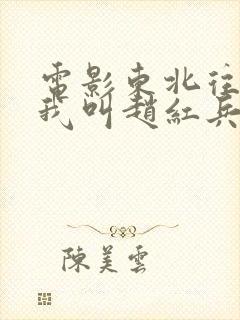 電影東北往
我叫趙紅兵
陳美雲